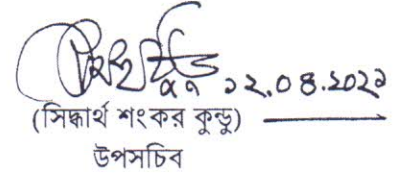 ১২.০৪.২০২১
(সিদ্ধার্থ শংকর কুন্ডু)
উপসচিব